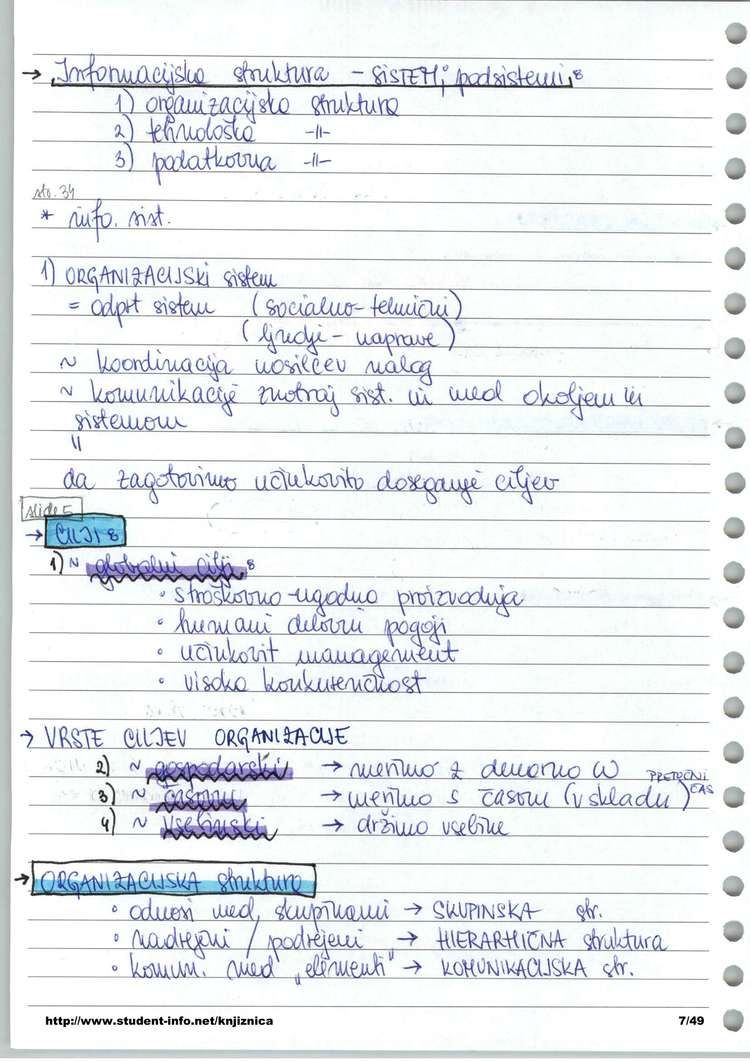 → Informacijska struktura - SISTEM, podsistemi:
1) organizacijska struktura
2) tehnološka -||-
3) podatkovna -||-
str. 34
* info. sist.
1) ORGANIZACIJSKI sistem
= odprt sistem (socialno-tehnični)
(ljudje - naprave)
~ koordinacija nosilcev nalog
~ komunikacije znotraj sist. in med okoljem in
sistemom
||
da zagotovimo učinkovito doseganje ciljev
slide 5
→ CILJI:
1) ~ globalni cilji:
• stroškovno-ugodno proizvodnja
• humani delovni pogoji
• učinkovit management
• visoka konkurenčnost
→ VRSTE CILJEV ORGANIZACIJE
2) ~ gospodarski → merimo z denarno
3) ~ časovni → merimo s časom (v skladu) PRETOČNI ČAS
4) ~ vsebinski → držimo vsebine
→ ORGANIZACIJSKA struktura
• odnosi med skupinami → SKUPINSKA str.
• nadrejeni / podrejeni → HIERARHIČNA struktura
• komun. med "elementi" → KOMUNIKACIJSKA str.
http://www.student-info.net/knjiznica 7/49